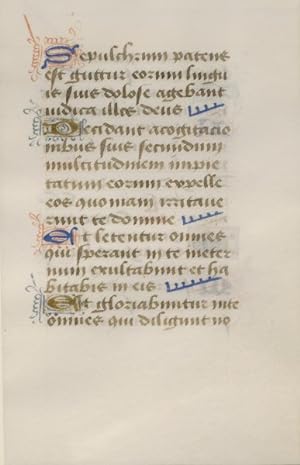 Sepulchrum patens
est guttur eorum lingu
is suis dolose agebant
iudica illos deus
Decidant acogitacio
nibus suis secundum
multitudinem impie
tatum eorum expelle
eos quoniam irritaue
runt te domine
Et letentur omnes
qui sperant in te ineter
num exultabunt et ha
bitabis in eis
Et gloriabuntur inte
omnes qui diligunt no